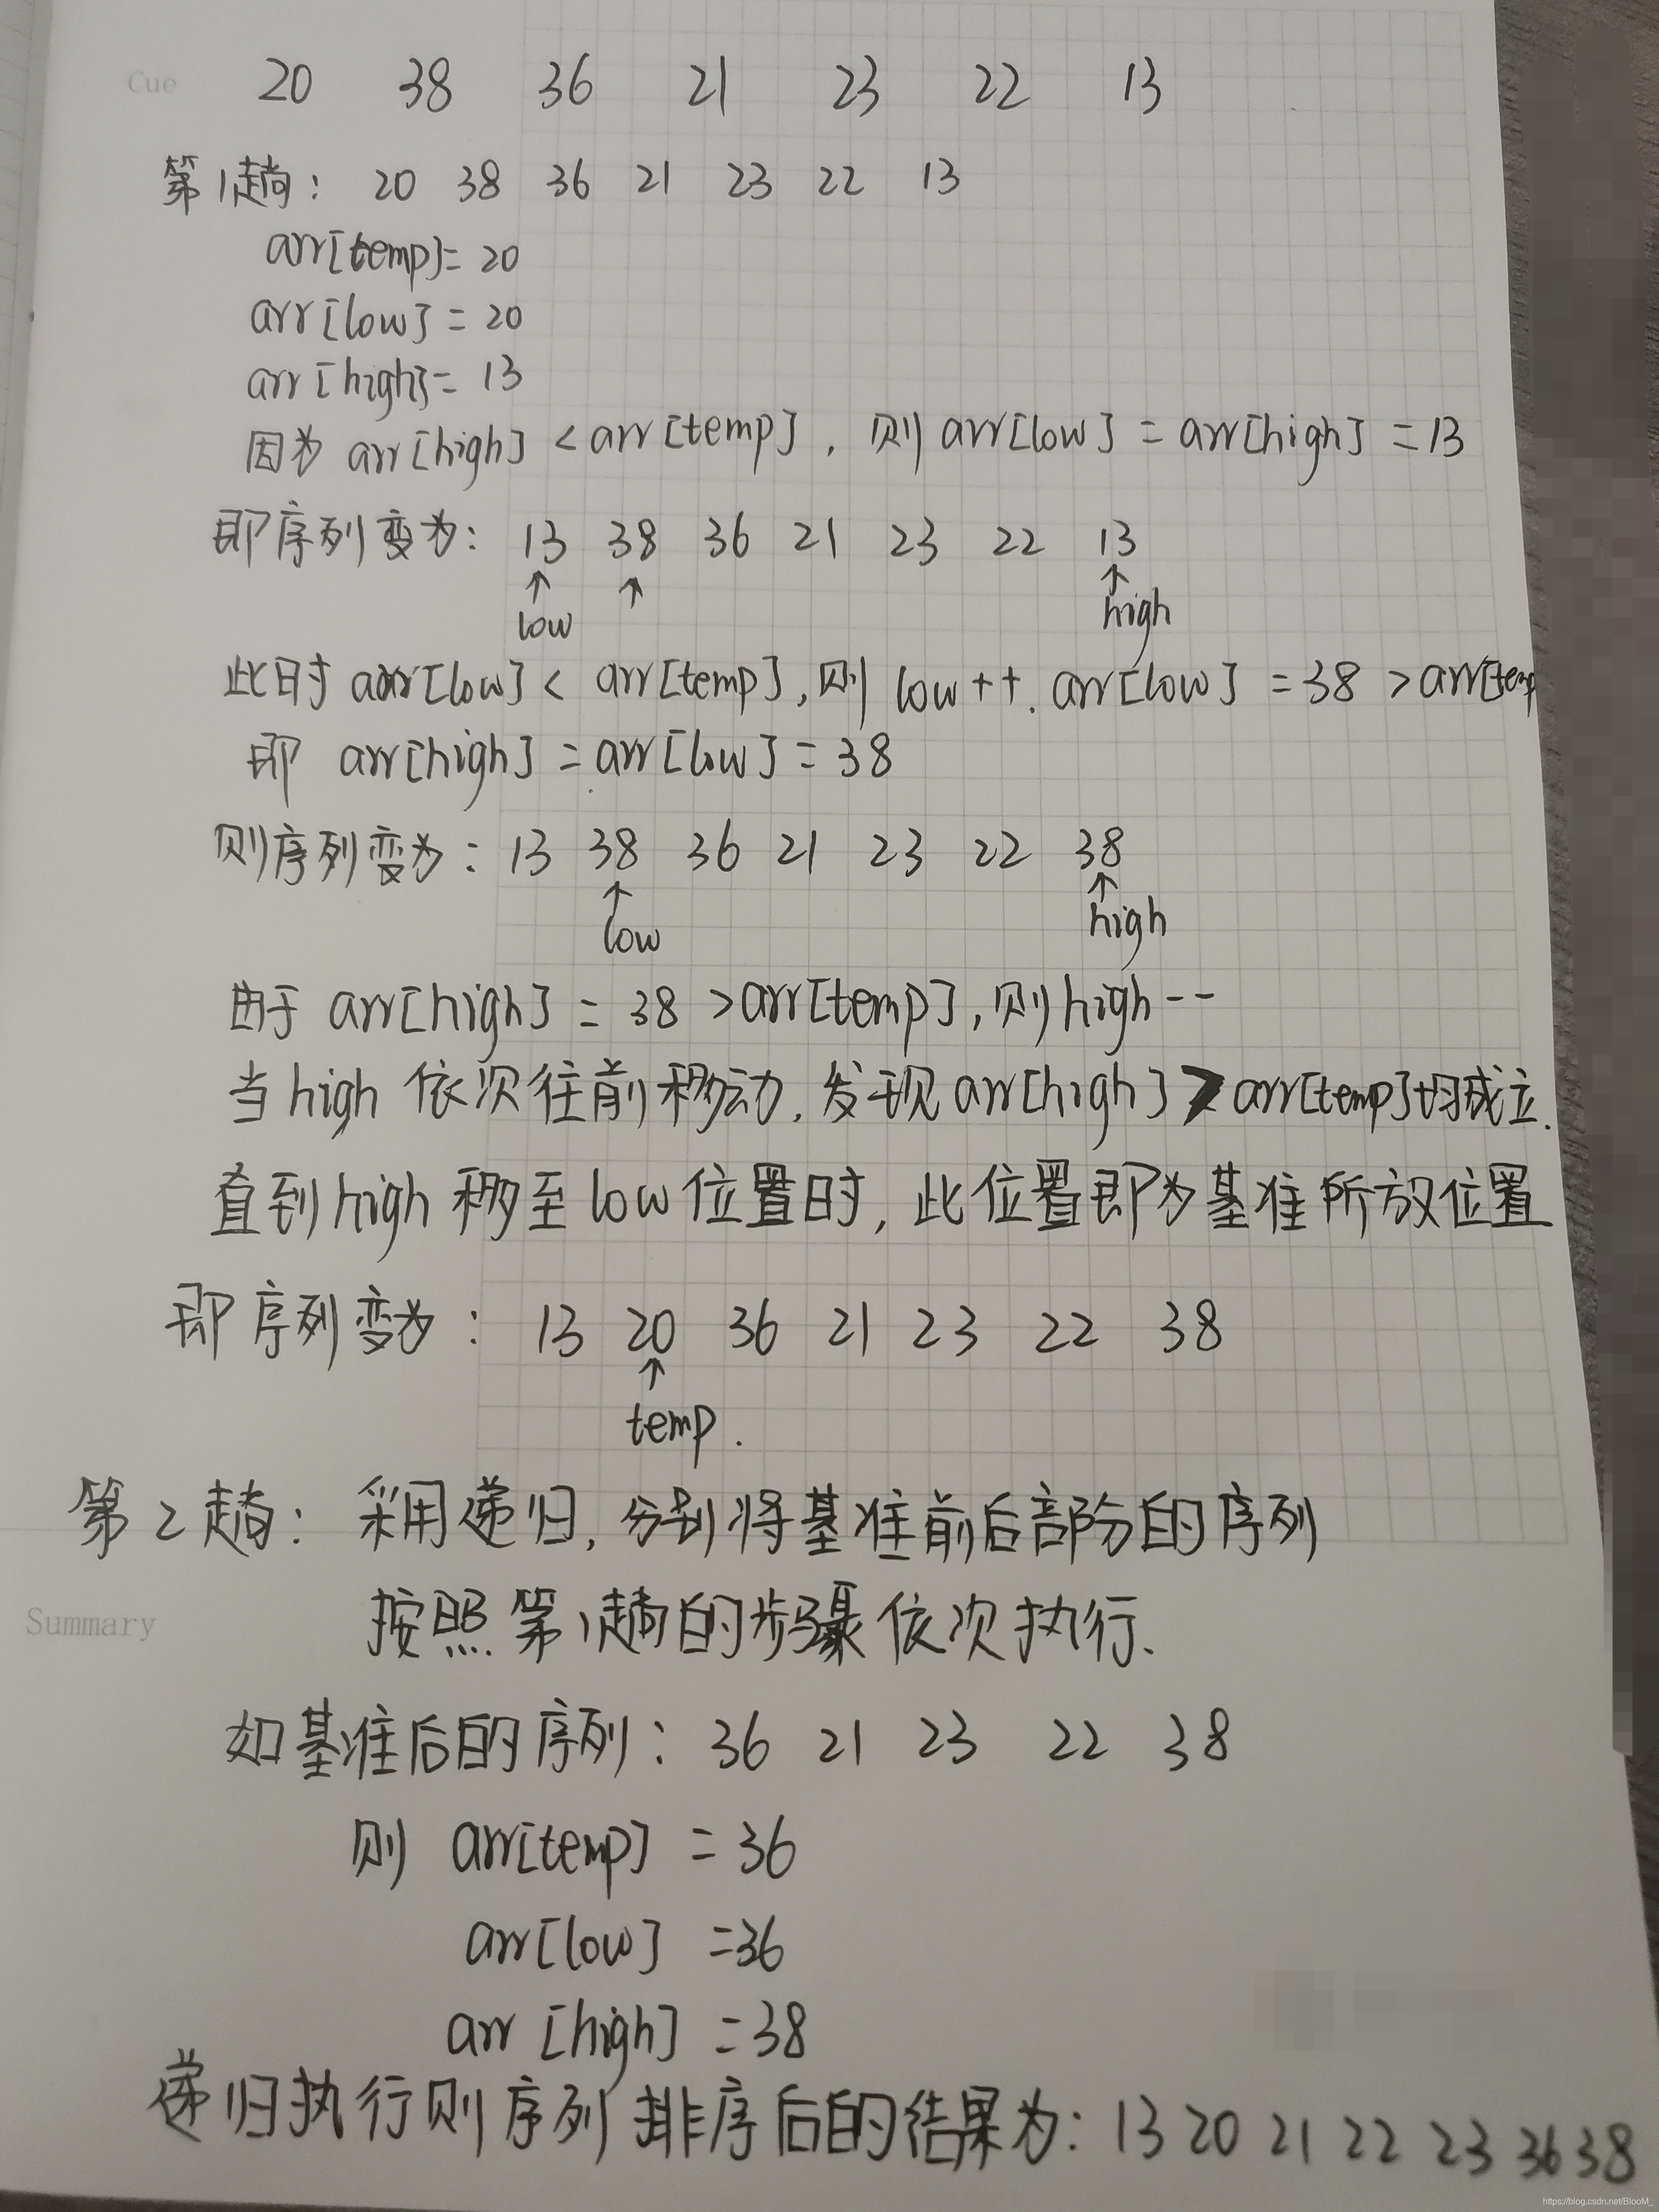 Cue
20 38 36 21 23 22 13
第1趟: 20 38 36 21 23 22 13
arr[temp]=20
arr[low]=20
arr[high]=13
因为 arr[high]<arr[temp],则arr[low]=arr[high]=13
即序列变为: 13 38 36 21 23 22 13
↑ ↑ ↑
low high
此时 aarr[low]< arr[temp],则 low++. arr[low] =38 >arr[temp
即 arr[high]=arr[low]=38
则序列变为: 13 38 36 21 23 22 38
↑ ↑
low high
由于 arr[high]= 38 >arr[temp],则high--
当high依次往前移动,发现arr[high]>arr[temp]均成立.
直到high移至low位置时,此位置即为基准所放位置
即序列变为: 13 20 36 21 23 22 38
↑
temp.
第2趟: 采用递归,分别将基准前后部分的序列
按照第1趟的步骤依次执行.
Summary
如基准后的序列: 36 21 23 22 38
则 arr[temp] =36
arr[low] =36
arr[high] =38
递归执行则序列排序后的结果为: 13 20 21 22 23 36 38
https://blog.csdn.net/BlooM_